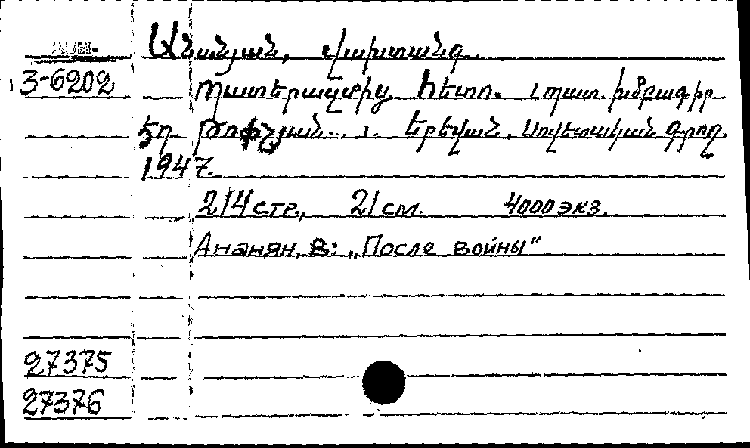 Անանյան, Վախտանգ.
3-6202 Պատերազմից հետո. Պատ. խմբագիր
Էդ. Թոփչյան. Երեվան, Սովետական գրող.
1947.
214 стр., 21 см. 4000 экз.
Ананян, В: „После войны"
27375
27376